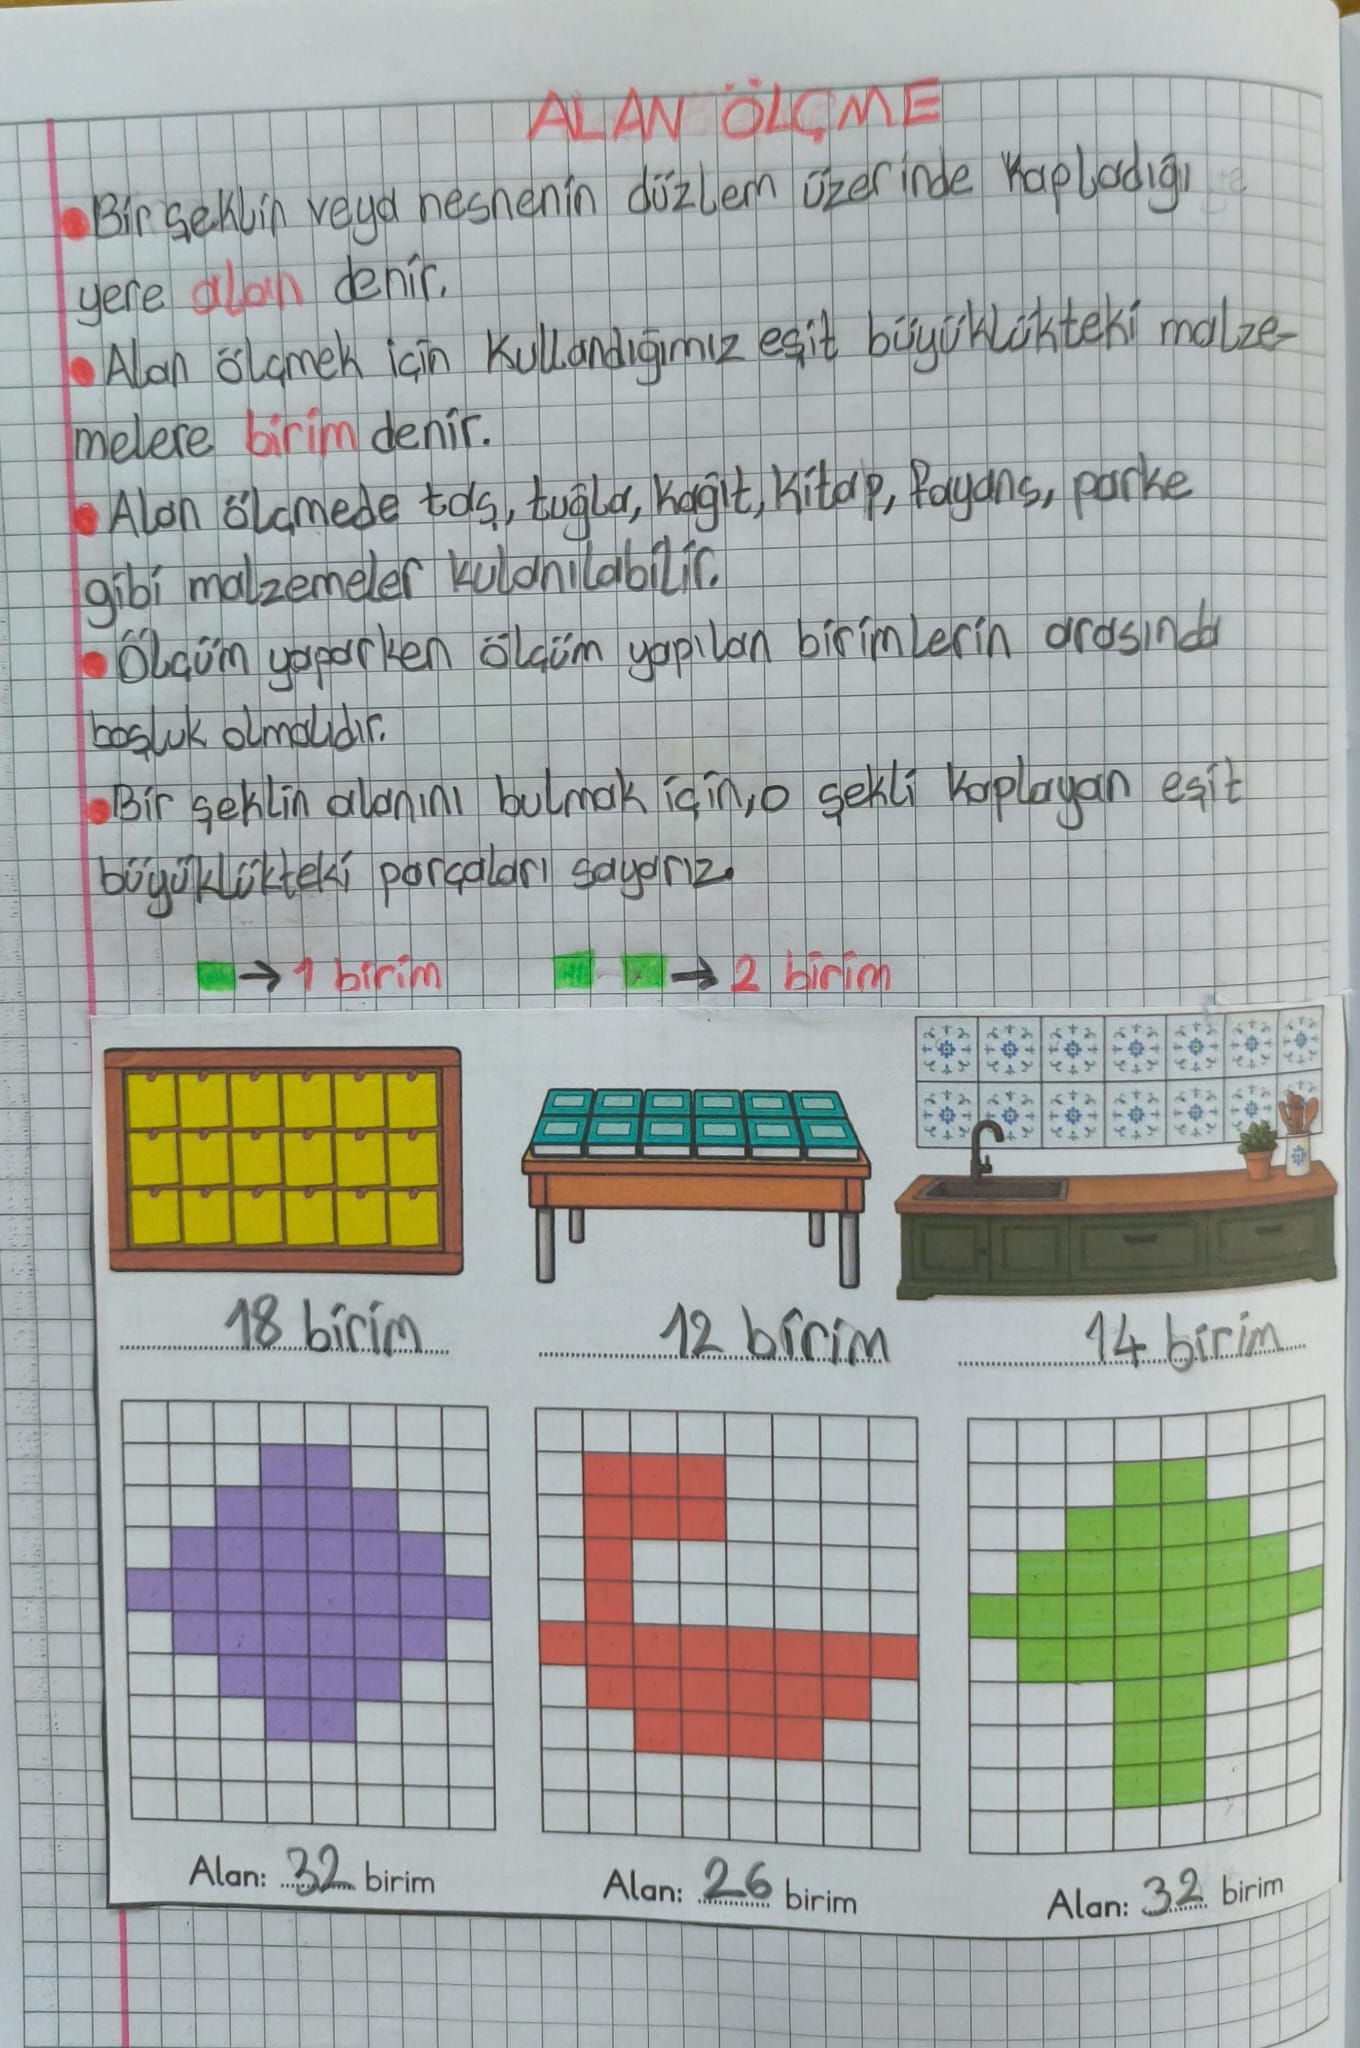 ALAN ÖLÇME
Bir şeklin veya nesnenin düzlem üzerinde kapladığı
yere alan denir.
Alan ölçmek için kullandığımız eşit büyüklükteki malze-
melere birim denir.
Alan ölçmede taş, tuğla, kağıt, kitap, fayans, parke
gibi malzemeler kulanılabilir.
Ölçüm yaparken ölçüm yapılan birimlerin arasında
boşluk olmalıdır.
Bir şeklin alanını bulmak için, o şekli kaplayan eşit
büyüklükteki parçaları sayarız.
→ 1 birim → 2 birim
18 birim 12 birim 14 birim
Alan: 32 birim Alan: 26 birim Alan: 32 birim